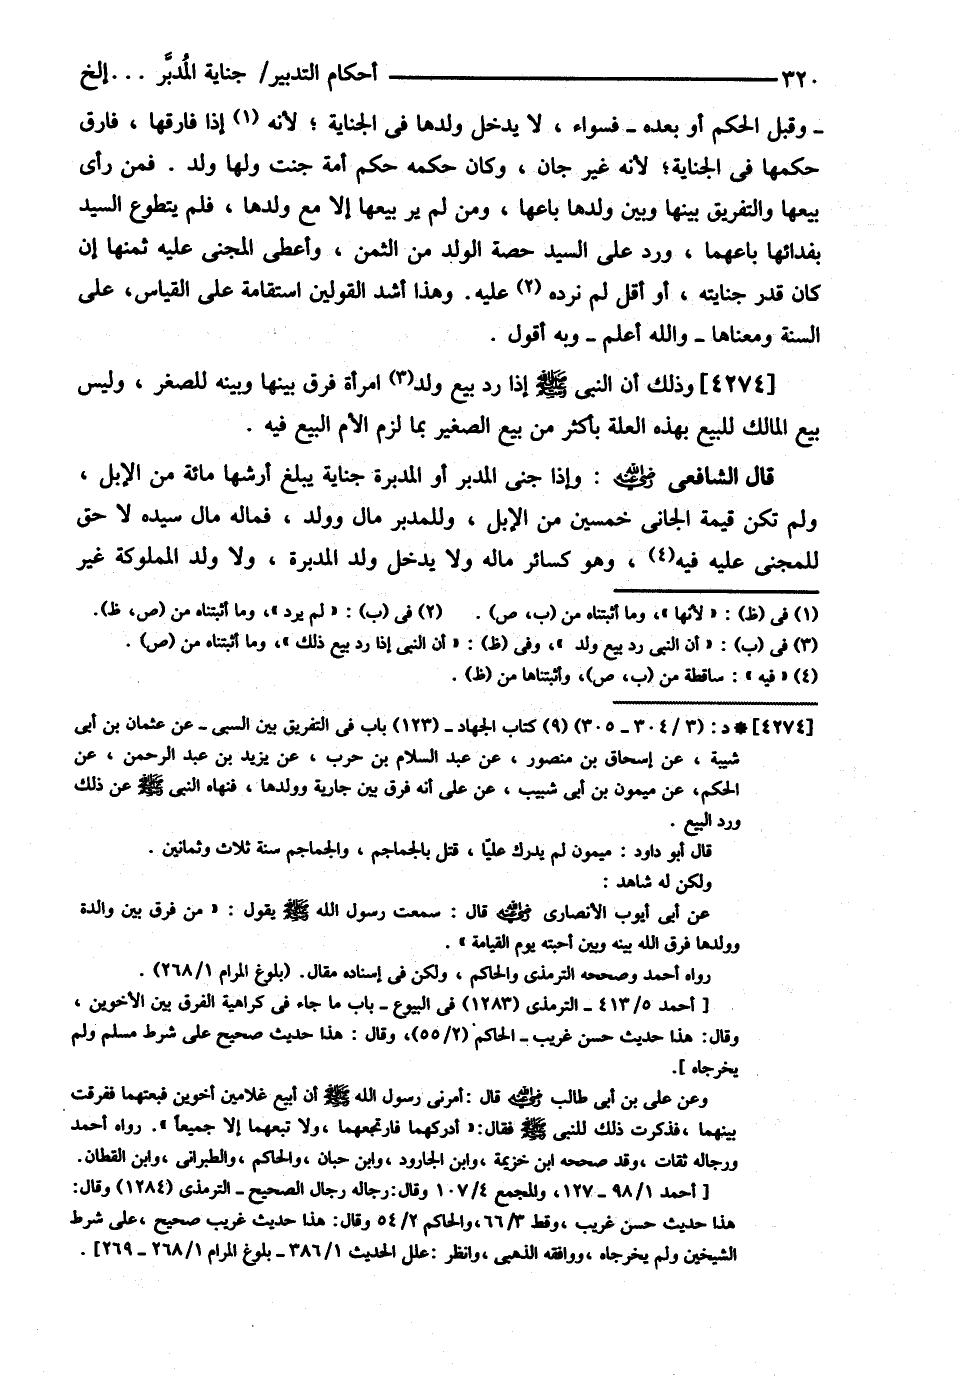 ٣٢٠ ــــــــــــ أحكام التدبير/ جناية المُدبَّر . . . إلخ
ـ وقبل الحكم أو بعده ـ فسواء ، لا يدخل ولدها فى الجناية ؛ لأنه (١) إذا فارقها ، فارق
حكمها فى الجناية؛ لأنه غير جان ، وكان حكمه حكم أمة جنت ولها ولد . فمن رأى
بيعها والتفريق بينها وبين ولدها باعها ، ومن لم ير بيعها إلا مع ولدها ، فلم يتطوع السيد
بفدائها باعهما ، ورد على السيد حصة الولد من الثمن ، وأعطى المجنى عليه ثمنها إن
كان قدر جنايته ، أو أقل لم نرده (٢) عليه. وهذا أشد القولين استقامة على القياس، على
السنة ومعناها ـ والله أعلم ـ وبه أقول .
[٤٢٧٤] وذلك أن النبى ﷺ إذا رد بيع ولد(٣) امرأة فرق بينها وبينه للصغر ، وليس
بيع المالك للبيع بهذه العلة بأكثر من بيع الصغير بما لزم الأم البيع فيه .
قال الشافعى رضي الله عنه : وإذا جنى المدبر أو المدبرة جناية يبلغ أرشها مائة من الإبل ،
ولم تكن قيمة الجانى خمسين من الإبل ، وللمدبر مال وولد ، فماله مال سيده لا حق
للمجنى عليه فيه(٤) ، وهو كسائر ماله ولا يدخل ولد المدبرة ، ولا ولد المملوكة غير
(١) فى (ظ) : « لأنها »، وما أثبتناه من (ب، ص) . (٢) فى (ب) : « لم يرد »، وما أثبتناه من (ص، ظ).
(٣) فى (ب) : « أن النبى رد بيع ولد »، وفى (ظ) : « أن النبى إذا رد بيع ذلك »، وما أثبتناه من (ص) .
(٤) « فيه » : ساقطة من (ب، ص)، وأثبتناها من (ظ) .
[٤٢٧٤] * د : (٣ / ٣٠٤ ـ ٣٠٥) (٩) كتاب الجهاد ـ (١٢٣) باب فى التفريق بين السبى ـ عن عثمان بن أبى
شيبة ، عن إسحاق بن منصور ، عن عبد السلام بن حرب ، عن يزيد بن عبد الرحمن ، عن
الحكم، عن ميمون بن أبى شبيب ، عن على أنه فرق بين جارية وولدها ، فنهاه النبى ﷺ عن ذلك
ورد البيع .
قال أبو داود : ميمون لم يدرك عليًا ، قتل بالجماجم ، والجماجم سنة ثلاث وثمانين .
ولكن له شاهد :
عن أبى أيوب الأنصارى رضي الله عنه قال : سمعت رسول الله ﷺ يقول : « من فرق بين والدة
وولدها فرق الله بينه وبين أحبته يوم القيامة » .
رواه أحمد وصححه الترمذى والحاكم ، ولكن فى إسناده مقال. (بلوغ المرام ٢٦٨/١) .
[ أحمد ٤١٣/٥ ـ الترمذى (١٢٨٣) فى البيوع ـ باب ما جاء فى كراهية الفرق بين الأخوين ،
وقال: هذا حديث حسن غريب ـ الحاكم (٥٥/٢)، وقال : هذا حديث صحيح على شرط مسلم ولم
يخرجاه ].
وعن على بن أبى طالب رضي الله عنه قال :أمرنى رسول الله ﷺ أن أبيع غلامين أخوين فبعتهما ففرقت
بينهما ،فذكرت ذلك للنبى ﷺ فقال:« أدركهما فارتجعهما ،ولا تبعهما إلا جميعاً ». رواه أحمد
ورجاله ثقات ،وقد صححه ابن خزيمة ،وابن الجارود ،وابن حبان ،والحاكم ،والطبرانى ،وابن القطان.
[ أحمد ٩٨/١ ـ ١٢٧، والمجمع ١٠٧/٤ وقال:رجاله رجال الصحيح ـ الترمذى (١٢٨٤) وقال:
هذا حديث حسن غريب ،وقط ٦٦/٣،والحاكم ٥٤/٢ وقال: هذا حديث غريب صحيح ،على شرط
الشيخين ولم يخرجاه ،ووافقه الذهبى ،وانظر :علل الحديث ٣٨٦/١ ـ بلوغ المرام ٢٦٨/١ ـ ٢٦٩] .